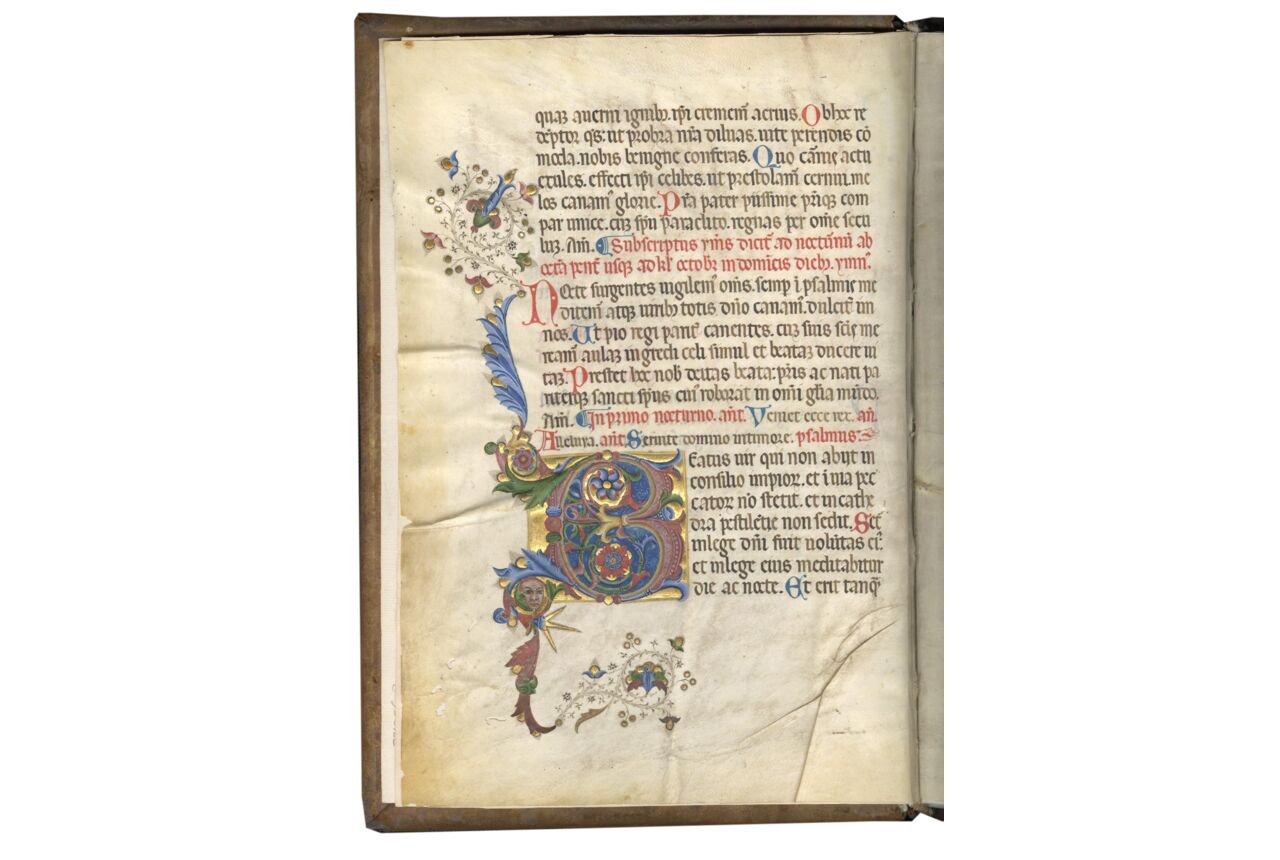 quaꝝ auerni ignibꝫ. ip̄i cremem̄ acrius. Ob hoc re
dēptor q̄s: ut probra nr̄a diluas. uite perendis cō
moda. nobis benigne conferas. Quo carn̄is actu
exules. effecti ip̄i celibes. ut prestolam̄ cernui. me
los canam̄ glorie. Pr̄a pater piissime pr̄iqꝫ com
par unice. cuꝫ sp̄u paraclito. regnas per om̄e secu
luꝫ. Am̄. Subscriptus ymn̄s dicit̄ ad nocturnū ab
octā̄ pent̄ usqꝫ ad kl̄ octobr̄ in domīcis diebꝫ. ymn̄.
Nocte surgentes uigilem̄ om̄s. semp̄ ī psalmis me
ditem̄ atqꝫ uiribꝫ totis dn̄o canam̄. dulcit̄ im
nos. Ut pio regi parit̄ canentes. cuꝫ suis sc̄is me
ream̄ aulaꝫ ingredi celi simul et beataꝫ ducere ui
taꝫ. Prestet hoc nob̄ deitas beata: pr̄is ac nati pa
riterqꝫ sancti sp̄us cui̅ roborat in om̄i gl̄ia mūdo.
Am̄. In primo nocturno. ant̄. Veniet ecce rex. an̄.
Alleluya. ant̄. Seruite domino in timore. psalmus.
Beatus uir qui non abijt in
consilio impioꝝ. et ī uia pec
catoꝝ nō stetit. et in cathe
dra pestilētie non sedit. Set
in lege dn̄i fuit uolūtas ei̅:
et in lege eius meditabitur
die ac nocte. Et erit tanqꝫ